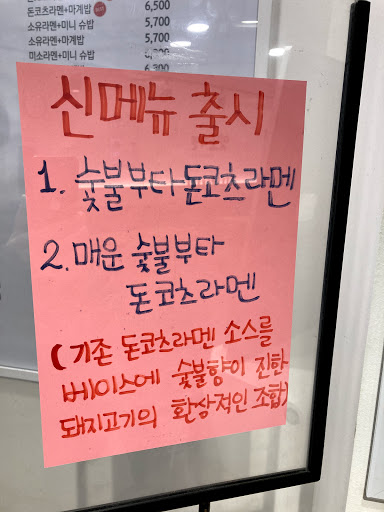 돈코츠라멘+마계밥 6,500
소유라멘+미니 슈밥 5,700
소유라멘+마계밥 5,700
미소라멘+미니 슈밥 6,300
신메뉴 출시
1. 숯불부타돈코츠라멘
2. 매운 숯불부타
돈코츠라멘
(기존 돈코츠라멘 소스를
베이스에 숯불향이 진한
돼지고기의 환상적인 조합)